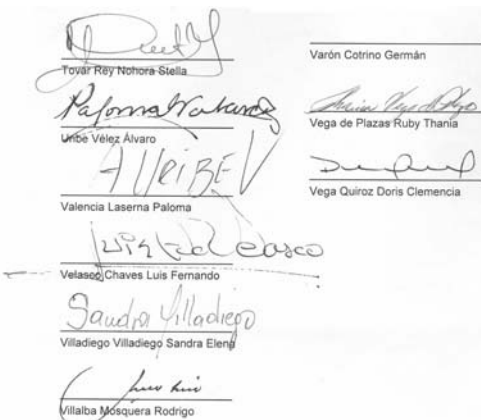 Tovar Rey Nohora Stella
Paloma Valencia
Uribe Vélez Álvaro
A URIBE V
Valencia Laserna Paloma
Luis Fdo Velasco
Velasco Chaves Luis Fernando
Sandra Villadiego
Villadiego Villadiego Sandra Elena
Villalba Mosquera Rodrigo
Varón Cotrino Germán
Vega de Plazas Ruby Thania
Vega Quiroz Doris Clemencia